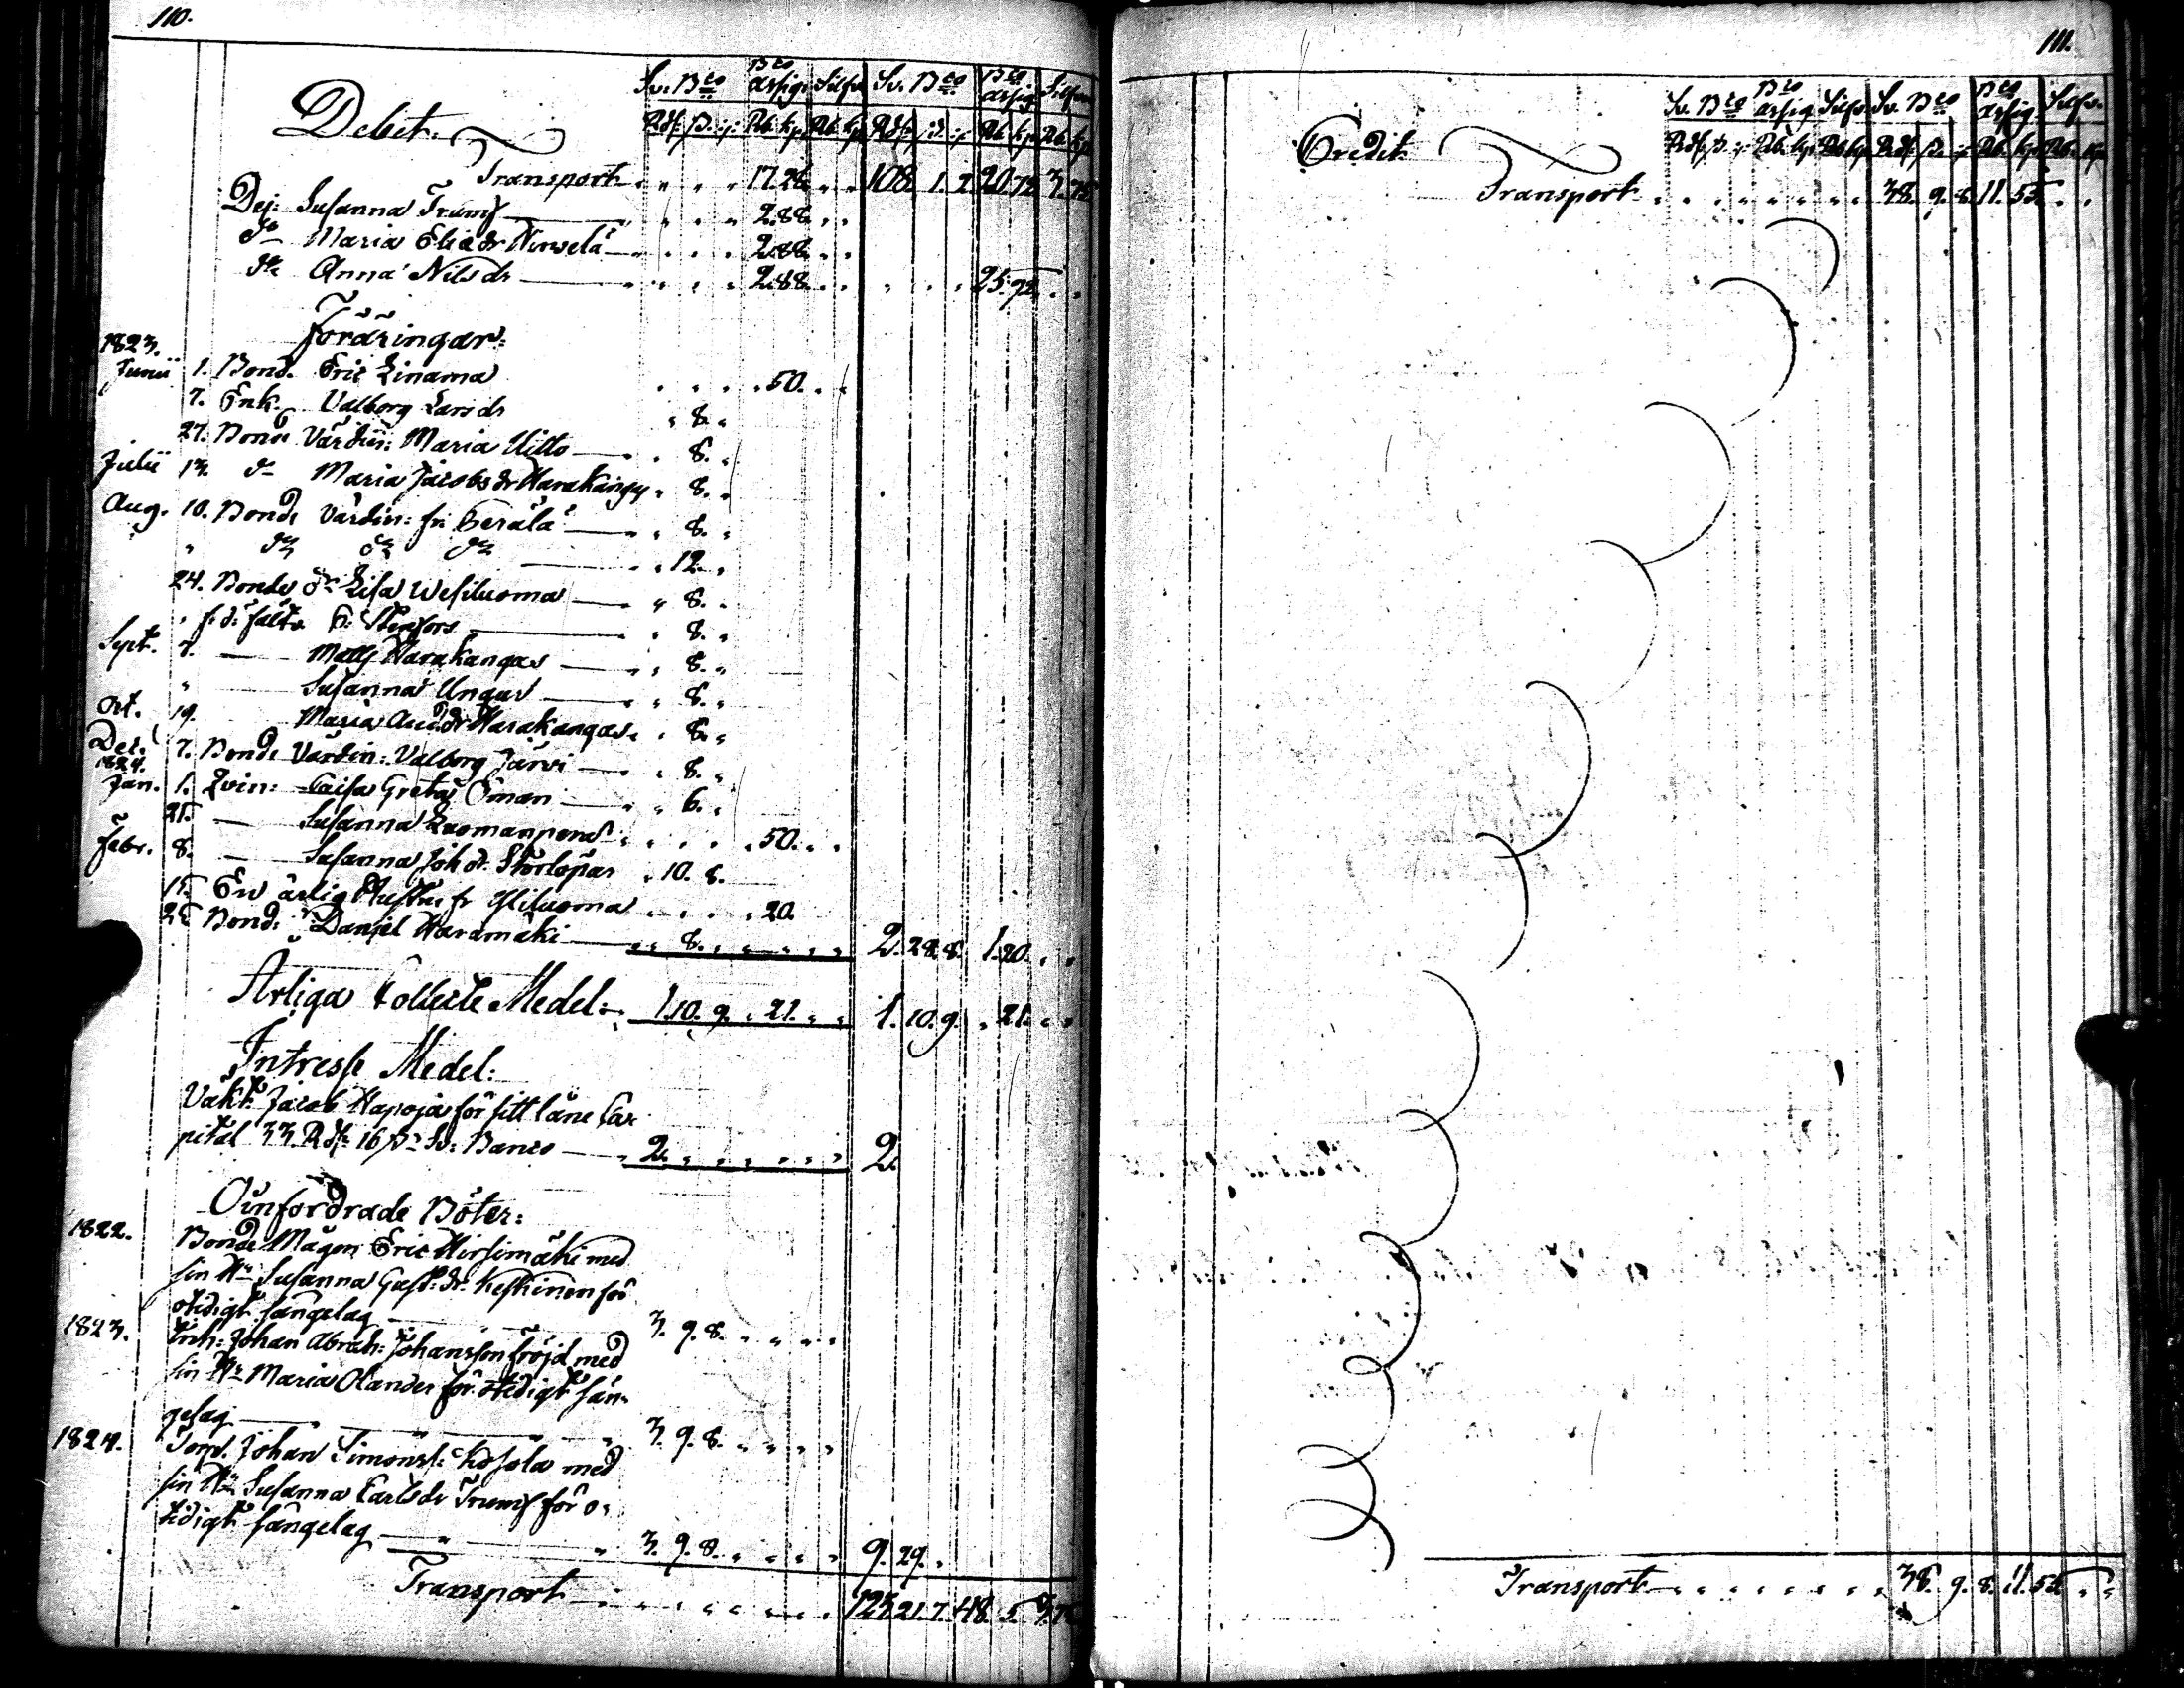 110.
Sv. Bco Bco assign. Silfv. Sv. Bco Bco assign. Silfver
Debet. Rdr. ß. rp. Rb. kp. Rb. kp. Rdr. ß. rp. Rb. kp. Rb. kp.
Transport 17. 28. 108. 1. 2. 20. 72. 3. 75
Dej: Susanna Trumf 2.88.
do Maria Eliædr Nirvelä 2.88.
do Anna Nilsdr 2.88. 25.72.
1823. Föräringar:
Junii 1. Bond. Eric Linama 50.
7. Enk. Valborg Larsdr 8.
27. Bond Värdin: Maria Uitto 8.
Julii 13. do Maria Jacobsdr Harakangas 8.
Aug. 10. Bonde Värdin: fr. Perälä 8.
" do do do 12.
24. Bonde do Lisa Wesiluoma 8.
8.
Sept. 7. — Matts Harakangas 8.
" Susanna Ungar 8.
Oct. 19. Maria And:dr Harakangas 8.
Dec. 7. Bonde Värdin: Valborg Järvi 8.
1824.
Jan. 1. Qvin: Caisa Greta Öman 6.
25. — Susanna Luomanperä 50.
Febr. 8. — Susanna Joh:dr Storlöpar 10. 8.
15. En ärlig Hustru fr. Yliluoma 20.
25. Bond: Daniel Haramäki 8. 2. 28. 8. 1.20.
Årliga Collecte Medel: 1.10. 9. 21. 1. 10. 9. 21.
Intresse Medel:
Vakt: Jacob Hapoja för sitt låne Ca-
pital 33 Rdr 16 ß Sv: Banco 2. 2.
Ouinfordrade Böter:
1822. Bonde Mågen Eric Hirsimäki med
sin Hu Susanna Gust:dr Keskinen för
otidigt sängelag 3. 9. 8.
1823. Inh: Johan Abrah: Johansson Fröjd med
sin Hu Maria Olander för otidigt sän-
gelag 3. 9. 8.
1824. Torp. Johan Simonss: Kosola med
sin Hu Susanna Carlsdr Trumf för o-
tidigt sängelag 3. 9. 8. 9. 29.
Transport 123. 21. 7. 48. 5. 3.75
111.
Sv. Bco Bco assig. Silfv. Sv. Bco Bco assig. Silfv.
Credit. Rdr. ß. rp. Rb. kp. Rb. kp. Rdr. ß. rp. Rb. kp. Rb. kp.
Transport 38. 9. 8. 11. 55.
Transport 38. 9. 8. 11. 55.